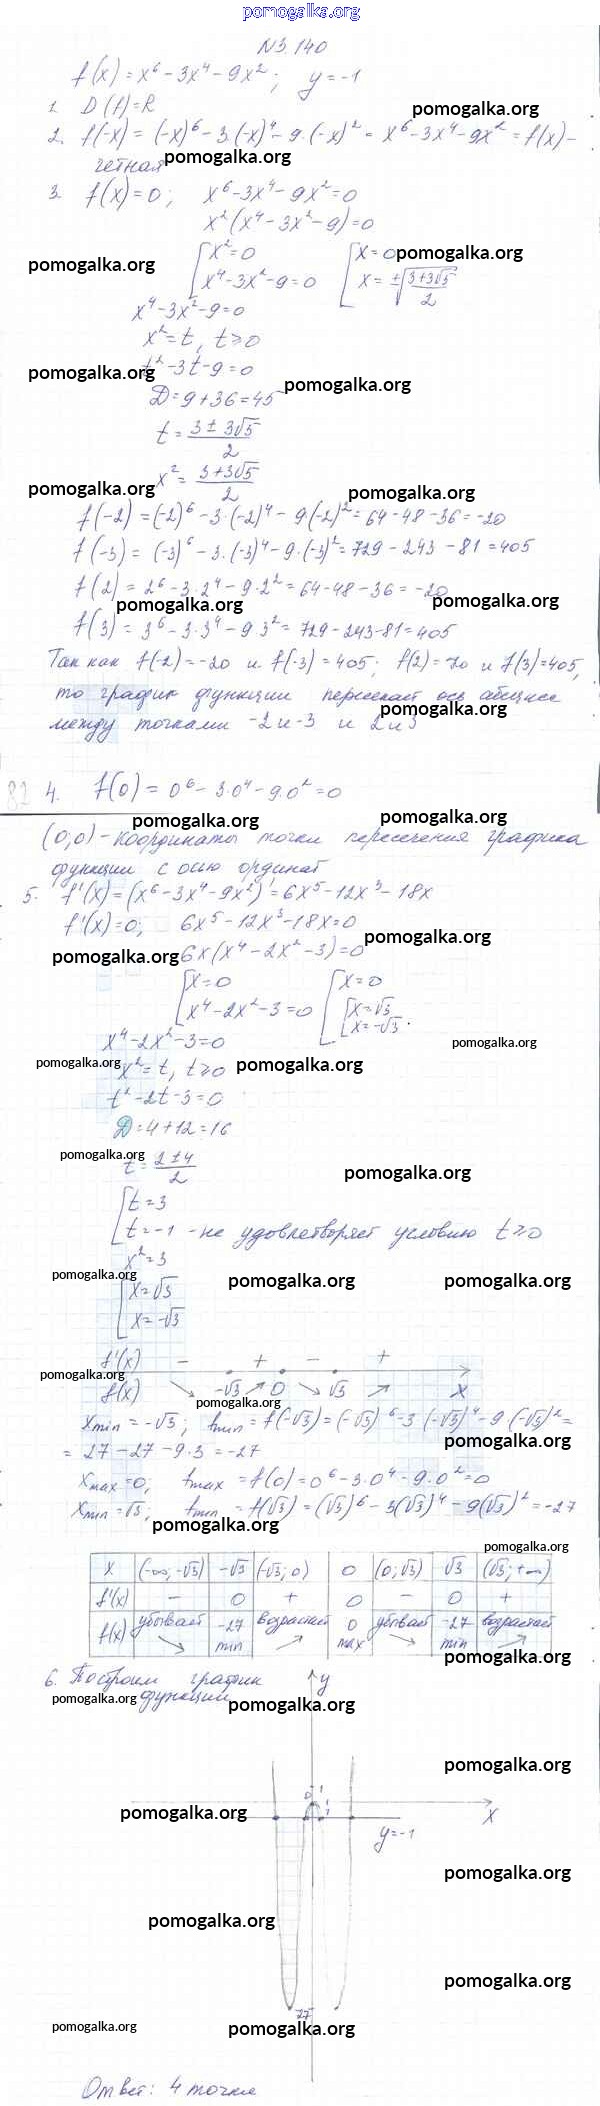 pomogalka.org
N3.140
f(x) = x⁶ - 3x⁴ - 9x²; y = -1
1. D(f) = R
pomogalka.org
2. f(-x) = (-x)⁶ - 3(-x)⁴ - 9·(-x)² = x⁶ - 3x⁴ - 9x² = f(x) -
четная pomogalka.org
3. f(x) = 0; x⁶ - 3x⁴ - 9x² = 0
x²(x⁴ - 3x² - 9) = 0
[x² = 0 [x = 0 pomogalka.org
pomogalka.org [x⁴ - 3x² - 9 = 0 [x = ±√((3+3√5)/2)
x⁴ - 3x² - 9 = 0
x² = t, t ≥ 0
pomogalka.org t² - 3t - 9 = 0
pomogalka.org
D = 9 + 36 = 45
t = (3 ± 3√5)/2
pomogalka.org x² = (3+3√5)/2 pomogalka.org
f(-2) = (-2)⁶ - 3·(-2)⁴ - 9·(-2)² = 64 - 48 - 36 = -20
f(-3) = (-3)⁶ - 3·(-3)⁴ - 9·(-3)² = 729 - 243 - 81 = 405
f(2) = 2⁶ - 3·2⁴ - 9·2² = 64 - 48 - 36 = -20
pomogalka.org pomogalka.org
f(3) = 3⁶ - 3·3⁴ - 9·3² = 729 - 243 - 81 = 405
Так как f(-2) = -20 и f(-3) = 405; f(2) = -20 и f(3) = 405,
то график функции пересекает ось абсцисс
pomogalka.org
между точками -2 и -3 и 2 и 3
82 4. f(0) = 0⁶ - 3·0⁴ - 9·0² = 0
pomogalka.org pomogalka.org
(0;0) - координаты точки пересечения графика
функции с осью ординат
5. f'(x) = (x⁶ - 3x⁴ - 9x²)' = 6x⁵ - 12x³ - 18x
f'(x) = 0; 6x⁵ - 12x³ - 18x = 0
pomogalka.org
pomogalka.org 6x(x⁴ - 2x² - 3) = 0
[x = 0 [x = 0
[x⁴ - 2x² - 3 = 0 [x = √3
[x = -√3.
x⁴ - 2x² - 3 = 0 pomogalka.org
pomogalka.org x² = t, t ≥ 0 pomogalka.org
t² - 2t - 3 = 0
D = 4 + 12 = 16
pomogalka.org
t = (2 ± 4)/2 pomogalka.org
[t = 3
[t = -1 - не удовлетворяет условию t ≥ 0
x² = 3
pomogalka.org pomogalka.org pomogalka.org
[x = √3
[x = -√3
f'(x) - + - +
pomogalka.org
f(x) -√3 0 √3 x
pomogalka.org
xmin = -√3; fmin = f(-√3) = (-√3)⁶ - 3(-√3)⁴ - 9(-√3)² =
pomogalka.org
= 27 - 27 - 9·3 = -27
xmax = 0; fmax = f(0) = 0⁶ - 3·0⁴ - 9·0² = 0
xmin = √3; fmin = f(√3) = (√3)⁶ - 3(√3)⁴ - 9(√3)² = -27
pomogalka.org
pomogalka.org
x (-∞;-√3) -√3 (-√3;0) 0 (0;√3) √3 (√3;+∞)
f'(x) - 0 + 0 - 0 +
f(x) убывает -27 min возрастает 0 max убывает -27 min возрастает
pomogalka.org
6. Построим график y
pomogalka.org функции pomogalka.org
pomogalka.org
0 1
1
pomogalka.org x
y = -1
pomogalka.org
pomogalka.org
pomogalka.org
-27
pomogalka.org pomogalka.org
Ответ: 4 точки
pomogalka.org